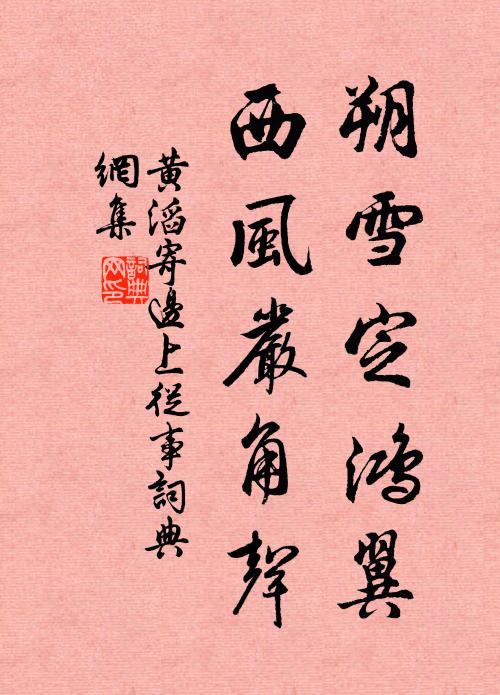 朔雪定鴻翼
西風嚴角聲
黄滔寄邊上從事詞典
網集
詞典
网印